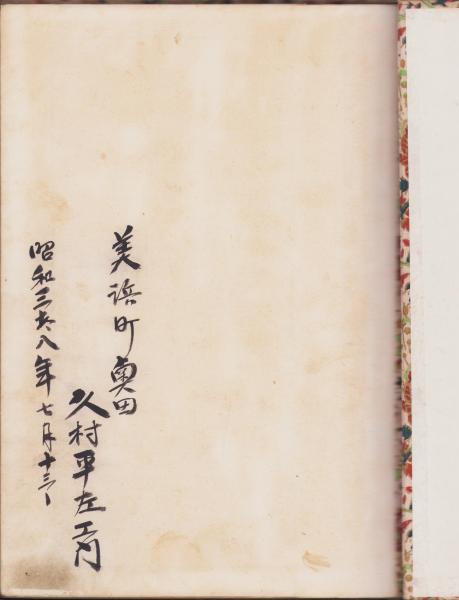 美浜町奥田
久村平左エ門
昭和三十八年七月十三日